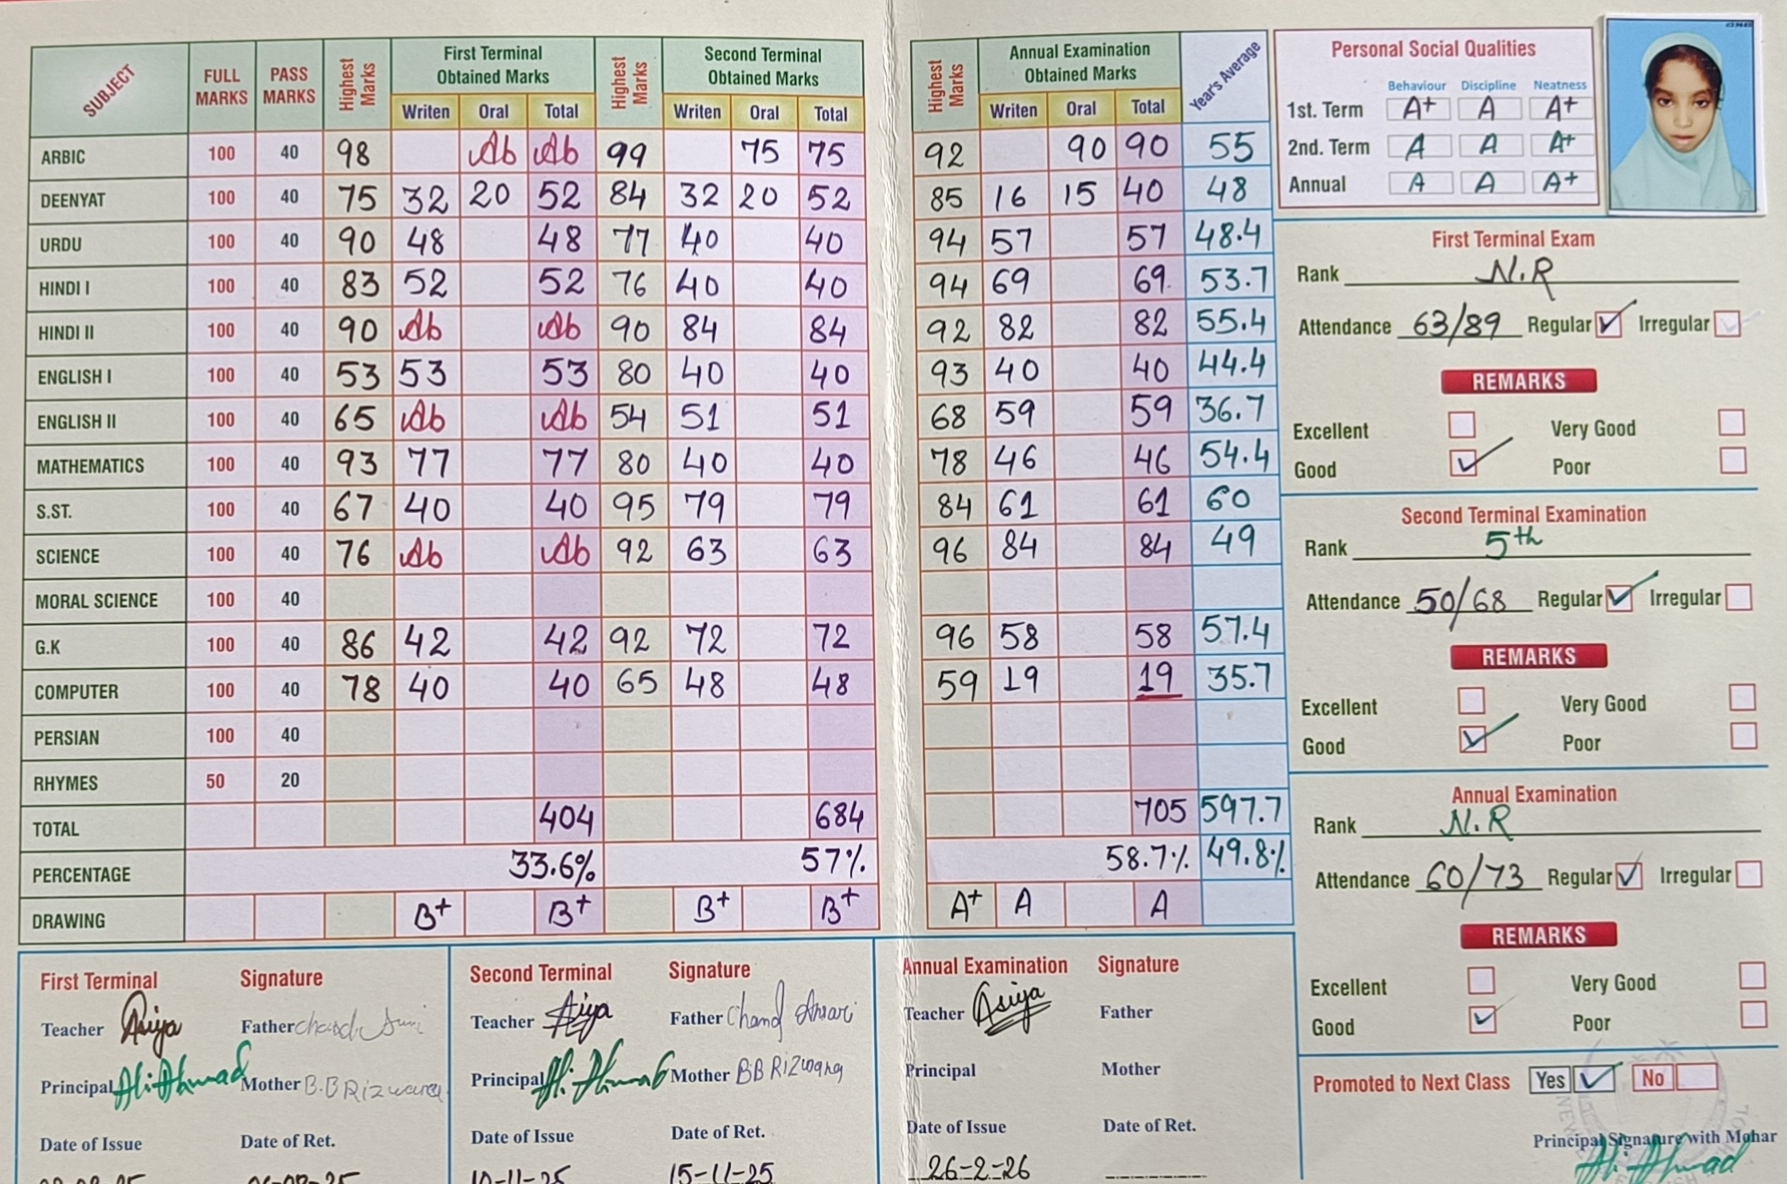 SUBJECT FULL MARKS PASS MARKS Highest Marks First Terminal Obtained Marks Highest Marks Second Terminal Obtained Marks Highest Marks Annual Examination Obtained Marks Year's Average
Writen Oral Total Writen Oral Total Writen Oral Total
ARBIC 100 40 98 Ab Ab 99 75 75 92 90 90 55
DEENYAT 100 40 75 32 20 52 84 32 20 52 85 16 15 40 48
URDU 100 40 90 48 48 77 40 40 94 57 57 48.4
HINDI I 100 40 83 52 52 76 40 40 94 69 69 53.7
HINDI II 100 40 90 Ab Ab 90 84 84 92 82 82 55.4
ENGLISH I 100 40 53 53 53 80 40 40 93 40 40 44.4
ENGLISH II 100 40 65 Ab Ab 54 51 51 68 59 59 36.7
MATHEMATICS 100 40 93 77 77 80 40 40 78 46 46 54.4
S.ST. 100 40 67 40 40 95 79 79 84 61 61 60
SCIENCE 100 40 76 Ab Ab 92 63 63 96 84 84 49
MORAL SCIENCE 100 40
G.K 100 40 86 42 42 92 72 72 96 58 58 57.4
COMPUTER 100 40 78 40 40 65 48 48 59 19 19 35.7
PERSIAN 100 40
RHYMES 50 20
TOTAL 404 684 705 597.7
PERCENTAGE 33.6% 57% 58.7% 49.8%
DRAWING B+ B+ B+ B+ A+ A A
Personal Social Qualities
Behaviour Discipline Neatness
1st. Term A+ A A+
2nd. Term A A A+
Annual A A A+
First Terminal Exam
Rank N.R
Attendance 63/89 Regular Irregular
REMARKS
Excellent Very Good
Good Poor
Second Terminal Examination
Rank 5th
Attendance 50/68 Regular Irregular
REMARKS
Excellent Very Good
Good Poor
Annual Examination
Rank N.R
Attendance 60/73 Regular Irregular
REMARKS
Excellent Very Good
Good Poor
Promoted to Next Class Yes No
Principal Signature with Mohar
Ali Ahmad
First Terminal Signature
Teacher Asiya Father Chand
Principal Ali Ahmad Mother B.B Rizwana
Date of Issue Date of Ret.
Second Terminal Signature
Teacher Asiya Father Chand Ansari
Principal Ali Ahmad Mother BB Rizwana
Date of Issue Date of Ret.
10-11-25 15-11-25
Annual Examination Signature
Teacher Asiya Father
Principal Mother
Date of Issue Date of Ret.
26-2-26